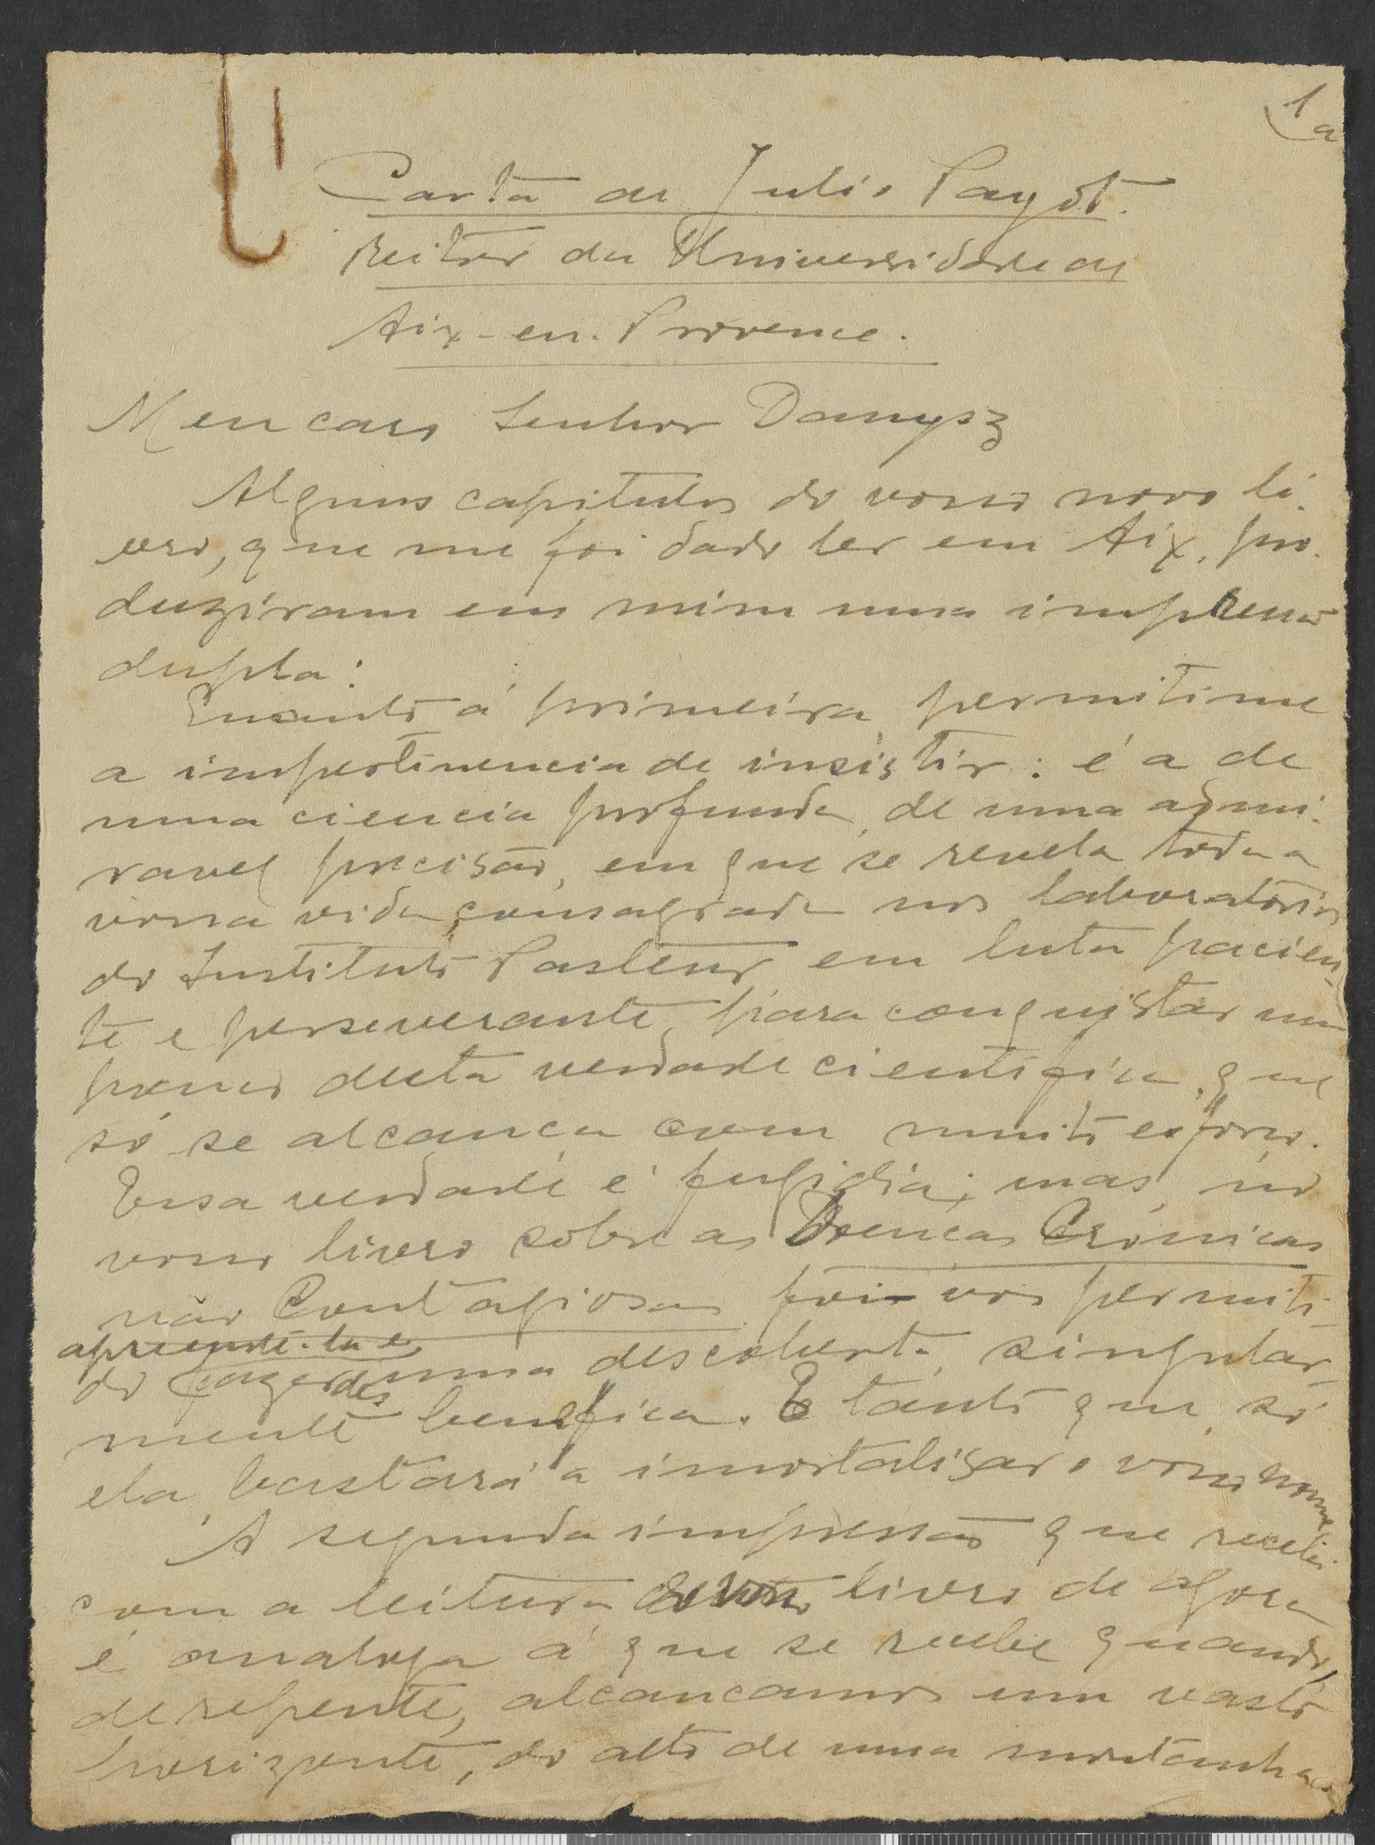 1a
Carta de Julio Payot.
Reitor da Universidade de
Aix-en-Provence.
Meu caro Senhor Danysz
Alguns capitulos do vosso novo li-
vro, que me foi dado ler em Aix, pro-
duziram em mim uma impressão
dupla:
Quanto á primeira, permiti-me
a impertinencia de insistir: é a de
uma ciencia profunda, de uma admi-
ravel precisão, em que se revela toda a
vossa vida, consagrada nos laboratorios
do Instituto Pasteur em luta pacien-
te e perseverante, para conquistar um
pouco desta verdade cientifica, que
só se alcança com muito esforço.
Essa verdade é fugidia; mas, no
vosso livro sobre as Doenças Crónicas
não Contagiosas foi-vos permiti-
apreendê-la e
do fazerdes uma descoberta, singular-
mente benefica. E tanto que, só
ela, bastará a imortalisar o vosso nome
A segunda impressão que recebi
com a leitura do vosso livro de agora
é analoga á que se recebe quando,
de repente, alcançamos um vasto
horizonte, do alto de uma montanha